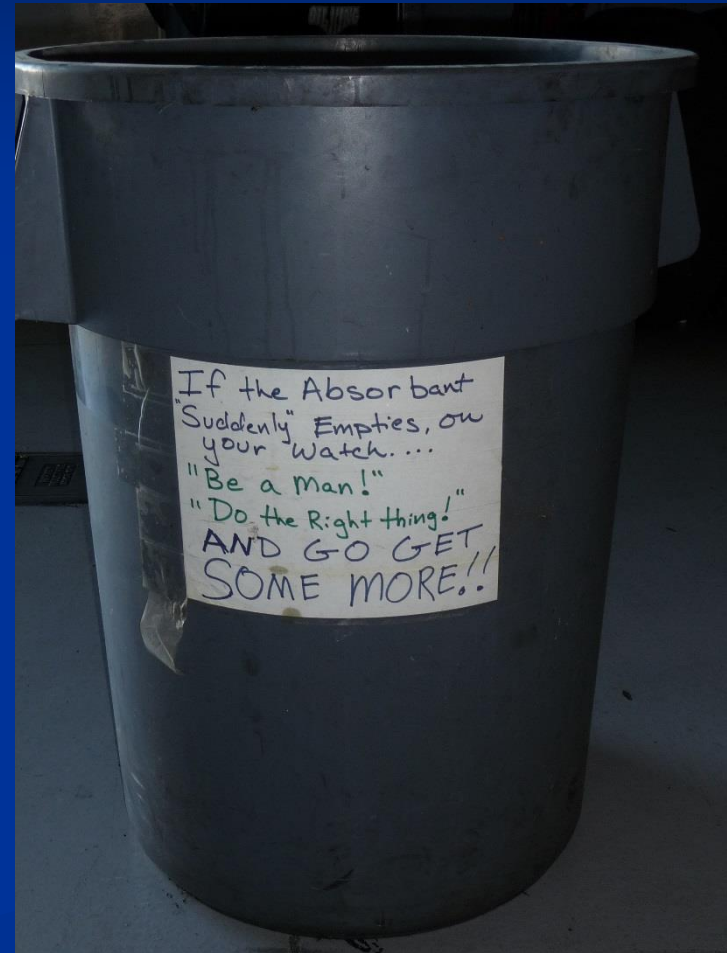 If the Absorbant
"Suddenly" Empties, on
your watch....
"Be a Man!"
"Do the Right thing!"
AND GO GET
SOME MORE!!